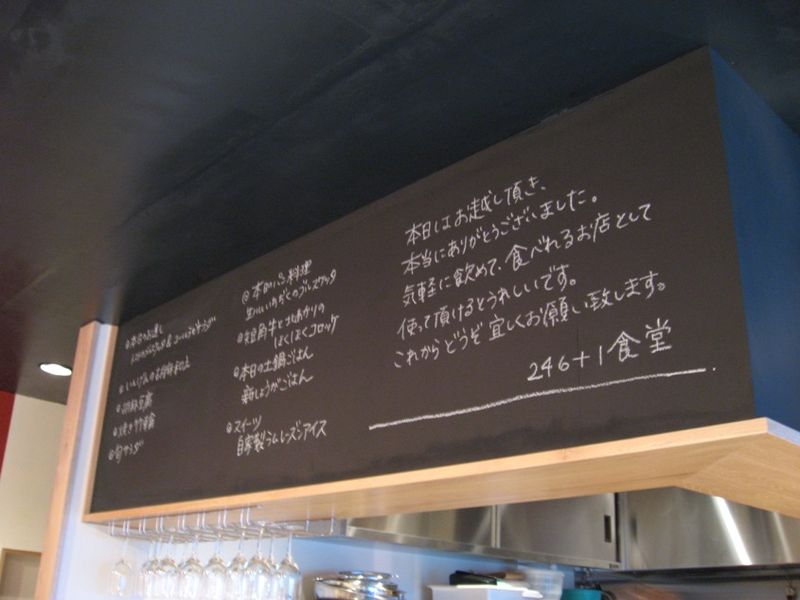 本日のお通し
いんげんのお胡麻和え
胡麻豆腐
旬サラダ
本日のパン料理
生ハムといちじくのブルスケッタ
短角牛ときたあかりの
ほくほくコロッケ
本日の土鍋ごはん
新しょうがごはん
スイーツ
自家製ラムレーズンアイス
本日はお越し頂き、
本当にありがとうございました。
気軽に飲めて、食べれるお店として
使って頂けるとうれしいです。
これからどうぞ宜しくお願い致します。
246+1食堂